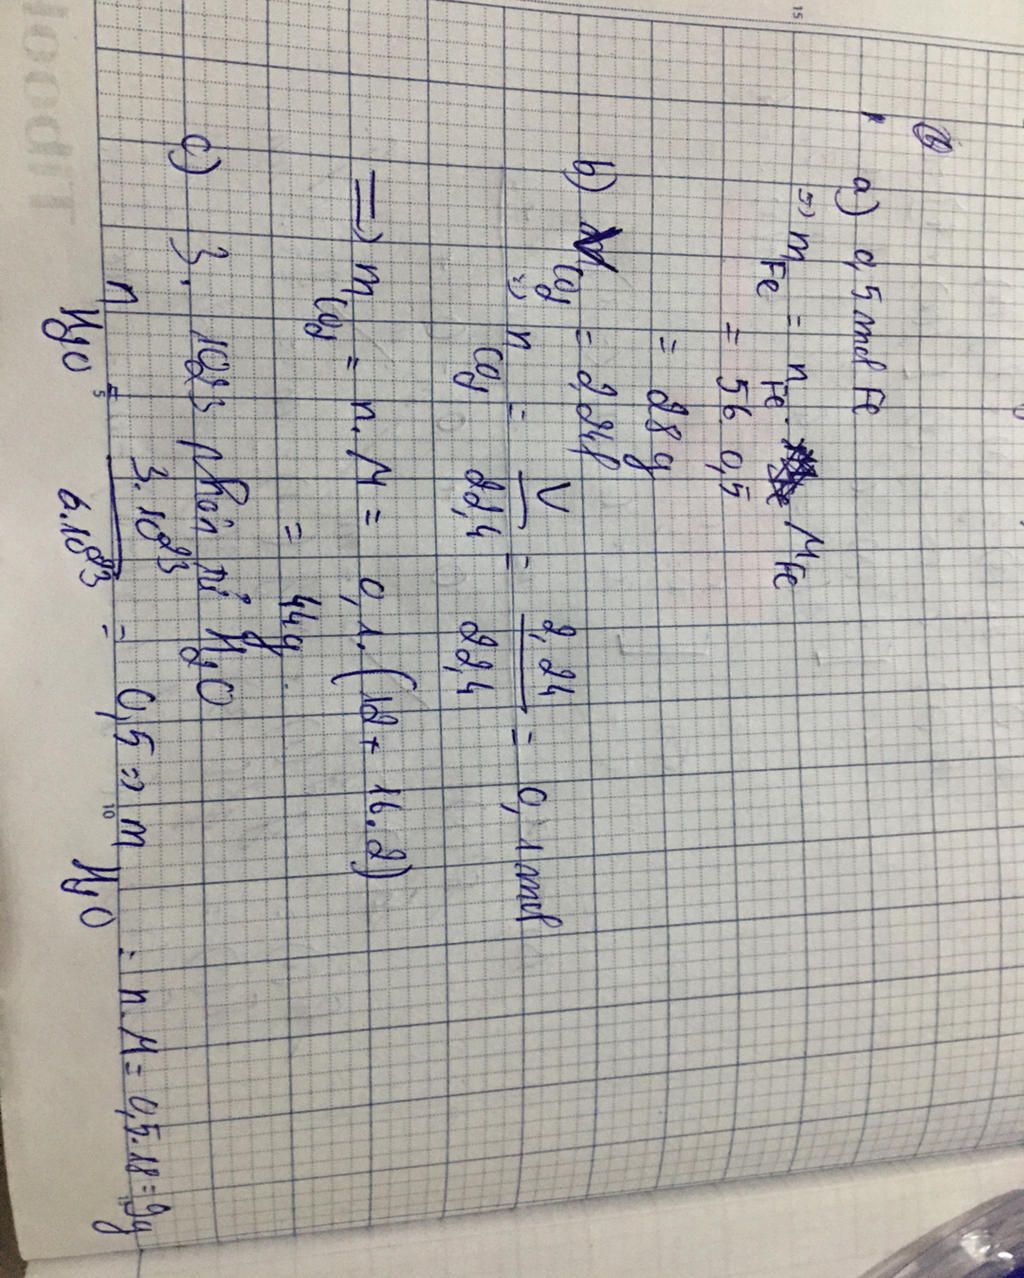 a) 0,5 mol Fe
=> mFe = nFe . MFe
= 56. 0,5
= 28g
b) VCO2 = 2,24l
=> nCO2 = V/22,4 = 2,24/22,4 = 0,1 mol
=> mCO2 = n.M = 0,1.(12+16.2)
= 44g
c) 3. 1023 phân tử H2O
nH2O = 3.1023/6.1023 = 0,5 => mH2O = n.M = 0,5.18=9g
5
10
15